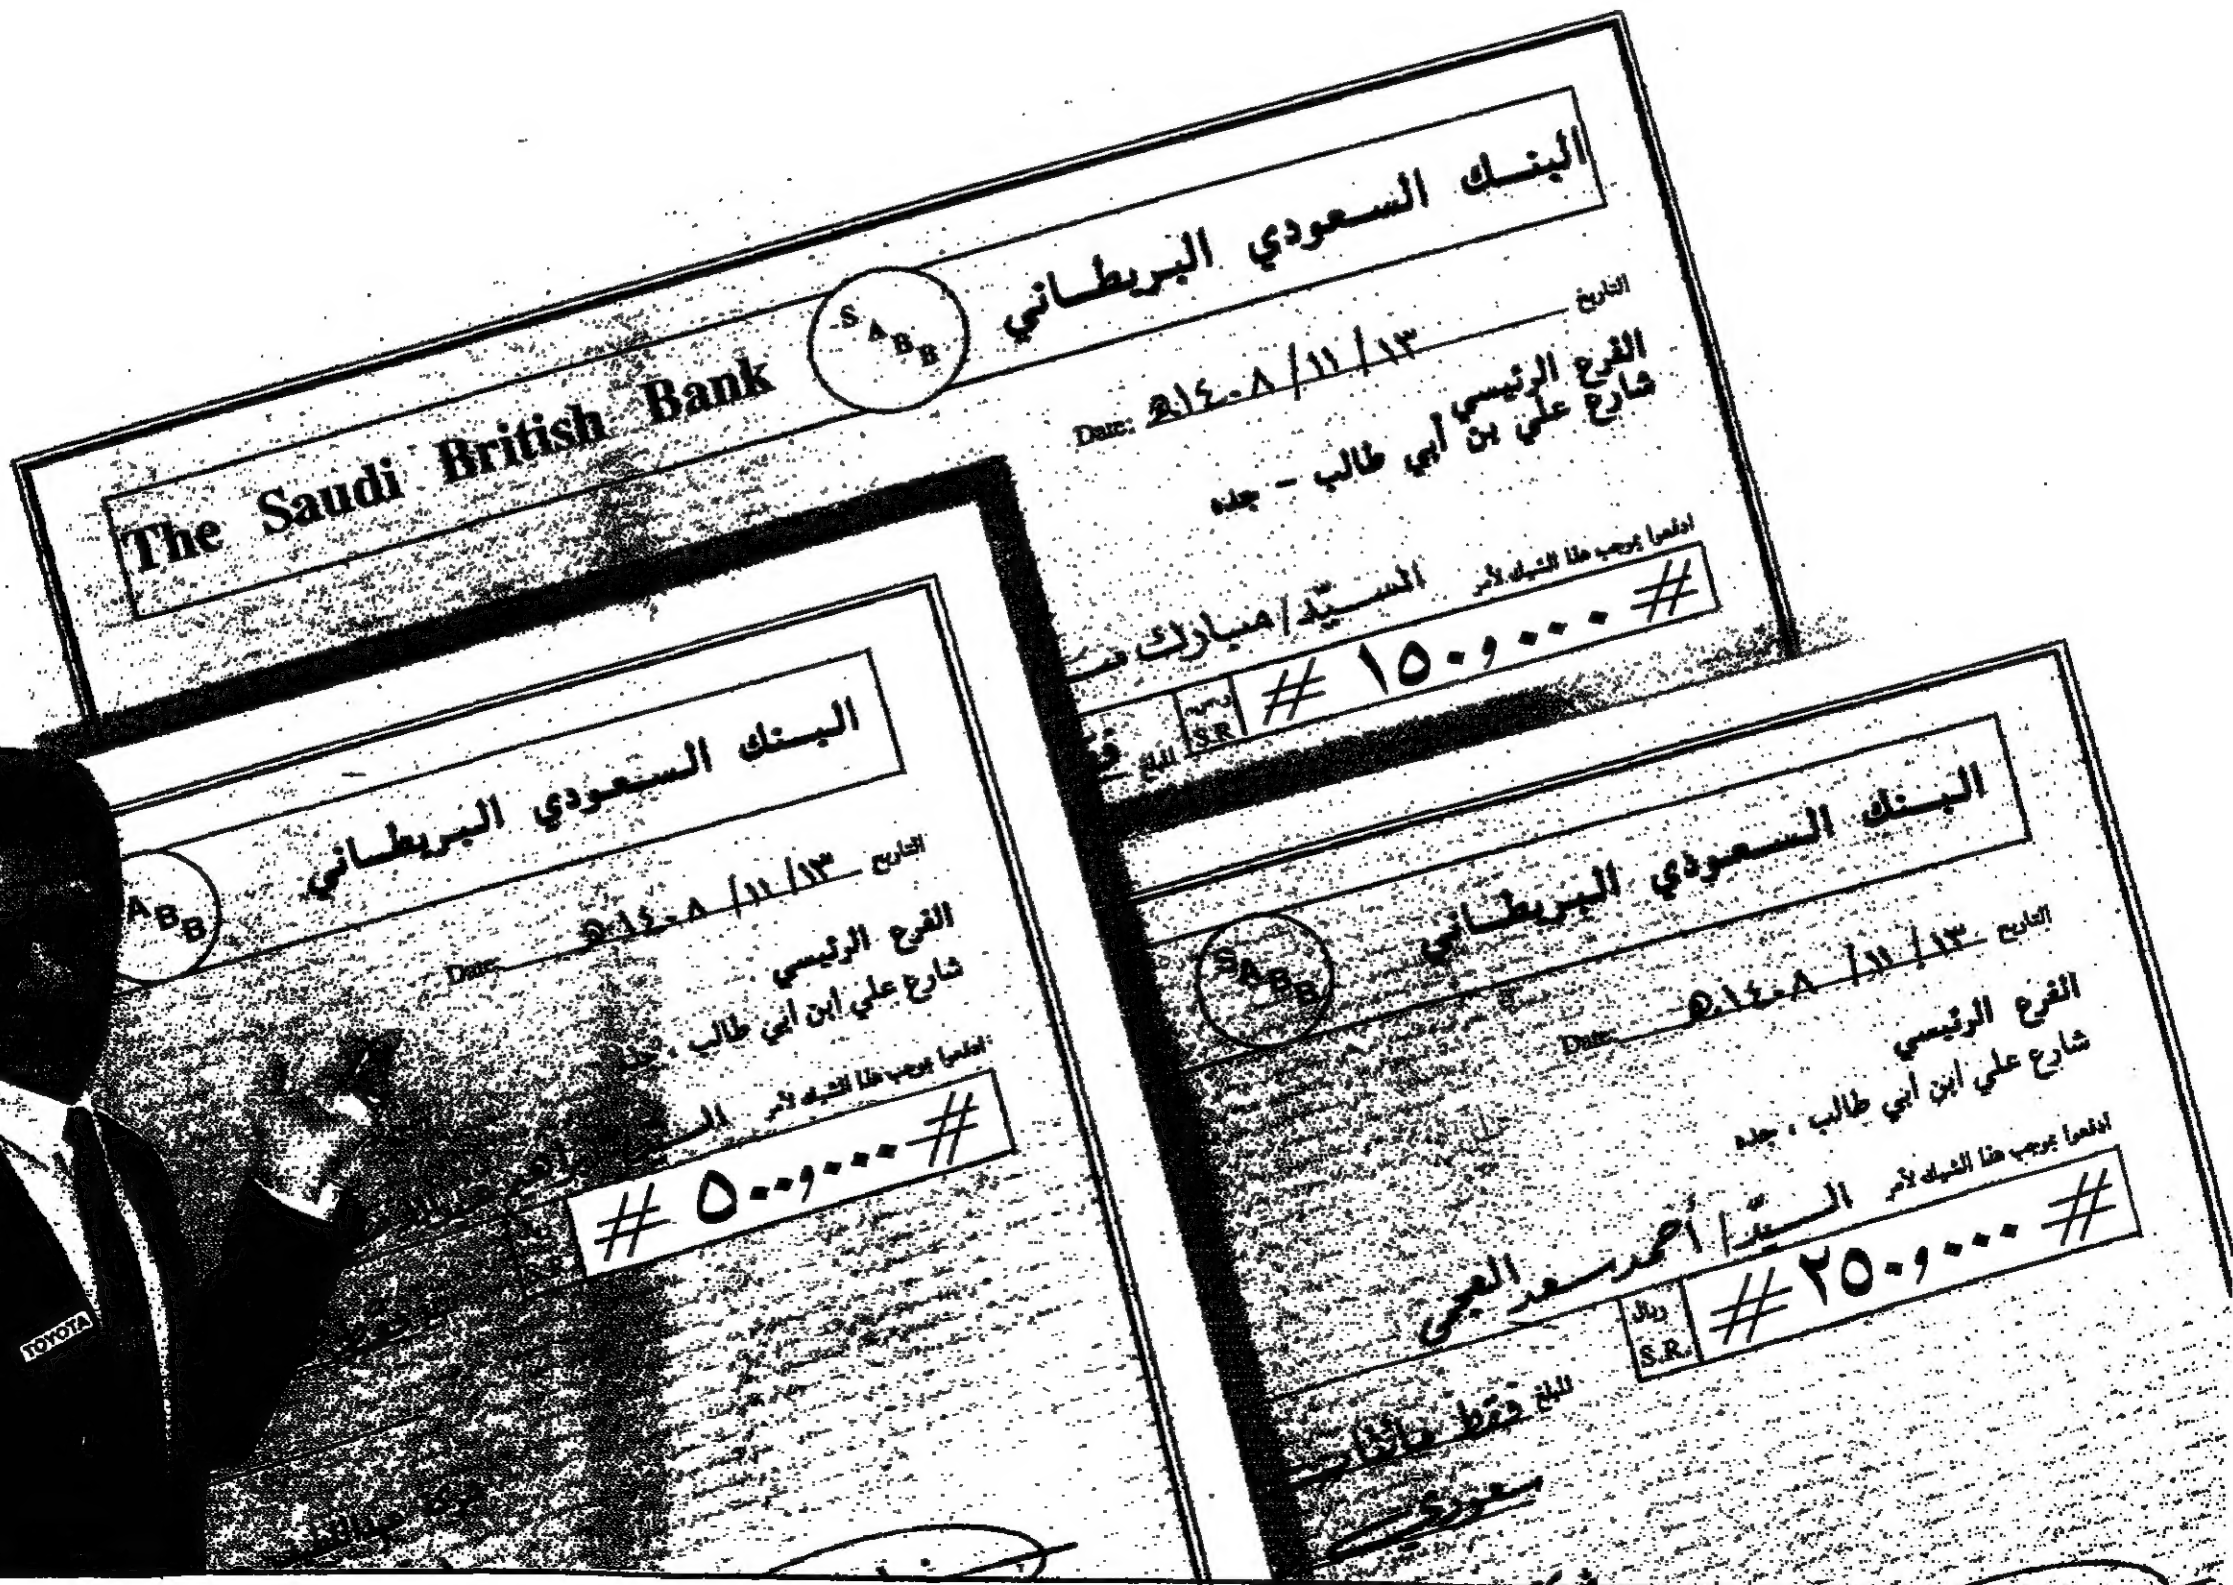 The Saudi British Bank
S A B B
البنك السعودي البريطاني
التاريخ ١٣ / ١١ / ١٤٠٨ هـ Date:
الفرع الرئيسي
شارع علي بن أبي طالب - جده
ادفعوا بموجب هذا الشيك لأمر السيد / مبارك
# ١٥٠,٠٠٠ #
S.R.
المبلغ
البنك السعودي البريطاني
A B B
التاريخ ١٣ / ١١ / ١٤٠٨ هـ Date:
الفرع الرئيسي
شارع علي ابن أبي طالب ، جده
ادفعوا بموجب هذا الشيك لأمر
# ٥٠٠,٠٠٠ #
S.R.
TOYOTA
البنك السعودي البريطاني
S A B B
التاريخ ١٣ / ١١ / ١٤٠٨ هـ Date:
الفرع الرئيسي
شارع علي ابن أبي طالب ، جده
ادفعوا بموجب هذا الشيك لأمر السيد / أحمد سعد العجمي
# ٢٥٠,٠٠٠ #
ريال
S.R.
المبلغ فقط مائتان
سعودي